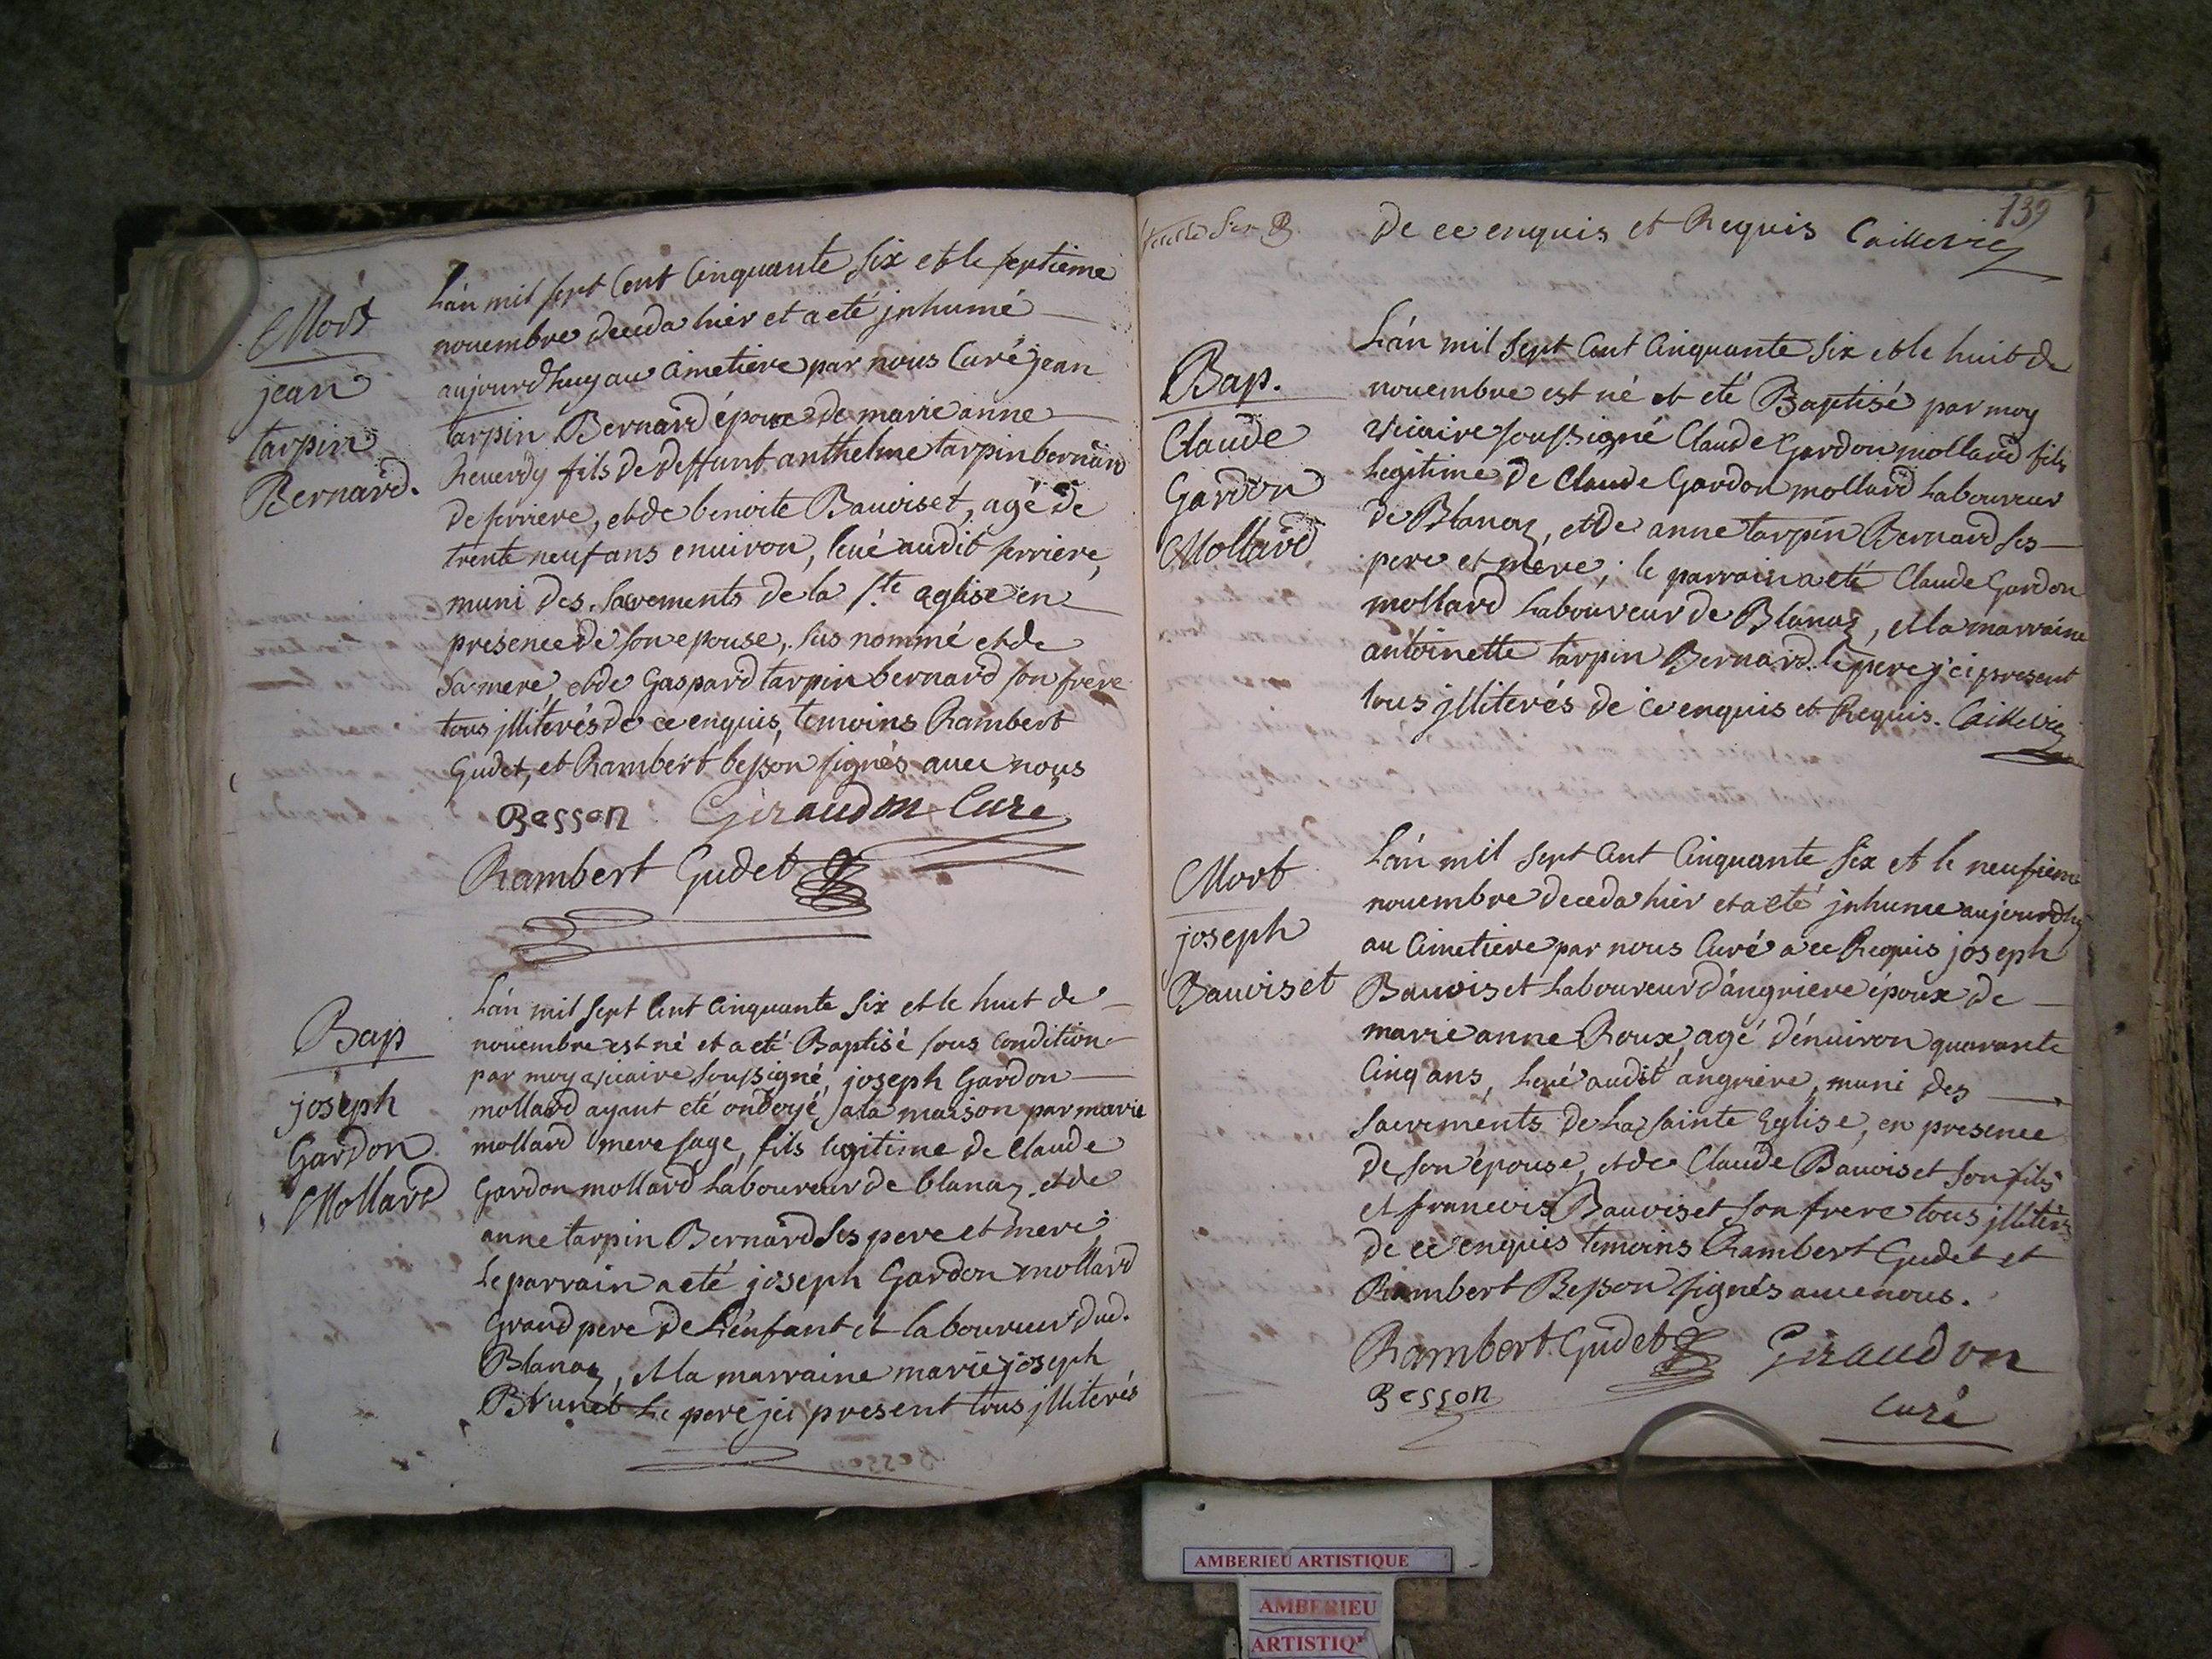 Mort
jean
tarpin
Bernard.
L'an mil sept Cent Cinquante six et le septieme
nouembre deceda hier et a eté jnhumé
aujourdhuy au Cimetiere par nous Curé jean
tarpin Bernard époux de marie anne
Reuerdy fils de deffunt anthelme tarpin bernard
de serriere, et de benoite Bauviset, agé de
trente neuf ans enuiron, leué audit serriere,
muni des Sacrements de la S.te eglise en
presence de son epouse, sus nommé et de
Sa mere, et de Gaspard tarpin bernard son frere
tous jlliterés de ce enquis, temoins Rambert
Gudet, et Rambert besson signés auec nous
Besson Giraudon Curé
Rambert Gudet
Bap
joseph
Gardon
Mollard
L'an mil sept Cent Cinquante Six et le huit de
nouembre est né et a eté Baptisé sous Condition
par moy vicaire soussigné, joseph Gardon
mollard ayant eté ondoyé a la maison par marie
mollard mere sage, fils legitime de Claude
Gardon mollard Laboureur de blanaz, et de
anne tarpin Bernard Ses pere et mere;
Le parrain a eté joseph Gardon mollard
Grand pere de L'enfant et laboureur dud.
Blanaz, et la marraine marie joseph
Brunet Le pere jci present tous jlliterés
139
De ce enquis et Requis Caillevie
Bap.
Claude
Gardon
Mollard
L'an mil Sept Cent Cinquante Six et le huit de
nouembre est né et eté Baptisé par moy
Vicaire soussigné Claude Gardon mollard fils
Legitime de Claude Gardon mollard Laboureur
de Blanaz, et de anne tarpin Bernard Ses
pere et mere; le parrain a eté Claude Gardon
mollard Laboureur de Blanaz, et la marraine
antoinette tarpin Bernard. le pere jci present
tous jlliterés de ce enquis et Requis. Caillevie
Mort
joseph
Bauviset
L'an mil Sept Cent Cinquante Six et le neufieme
nouembre deceda hier et a eté jnhume aujourdhuy
au Cimetiere par nous Curé a ce Requis joseph
Bauviset Laboureur d'angriere époux de
marie anne Roux, agé d'enuiron quarante
Cinq ans, Leué audit angriere, muni des
Sacrements de La sainte Eglise, en presence
de son épouse, et de Claude Bauviset Son fils
et francois Bauviset Son frere tous jlliterés
de ce enquis temoins Rambert Gudet et
Rambert Besson signés auec nous.
Rambert Gudet Giraudon
Besson Curé
AMBERIEU ARTISTIQUE
AMBERIEU
ARTISTIQ